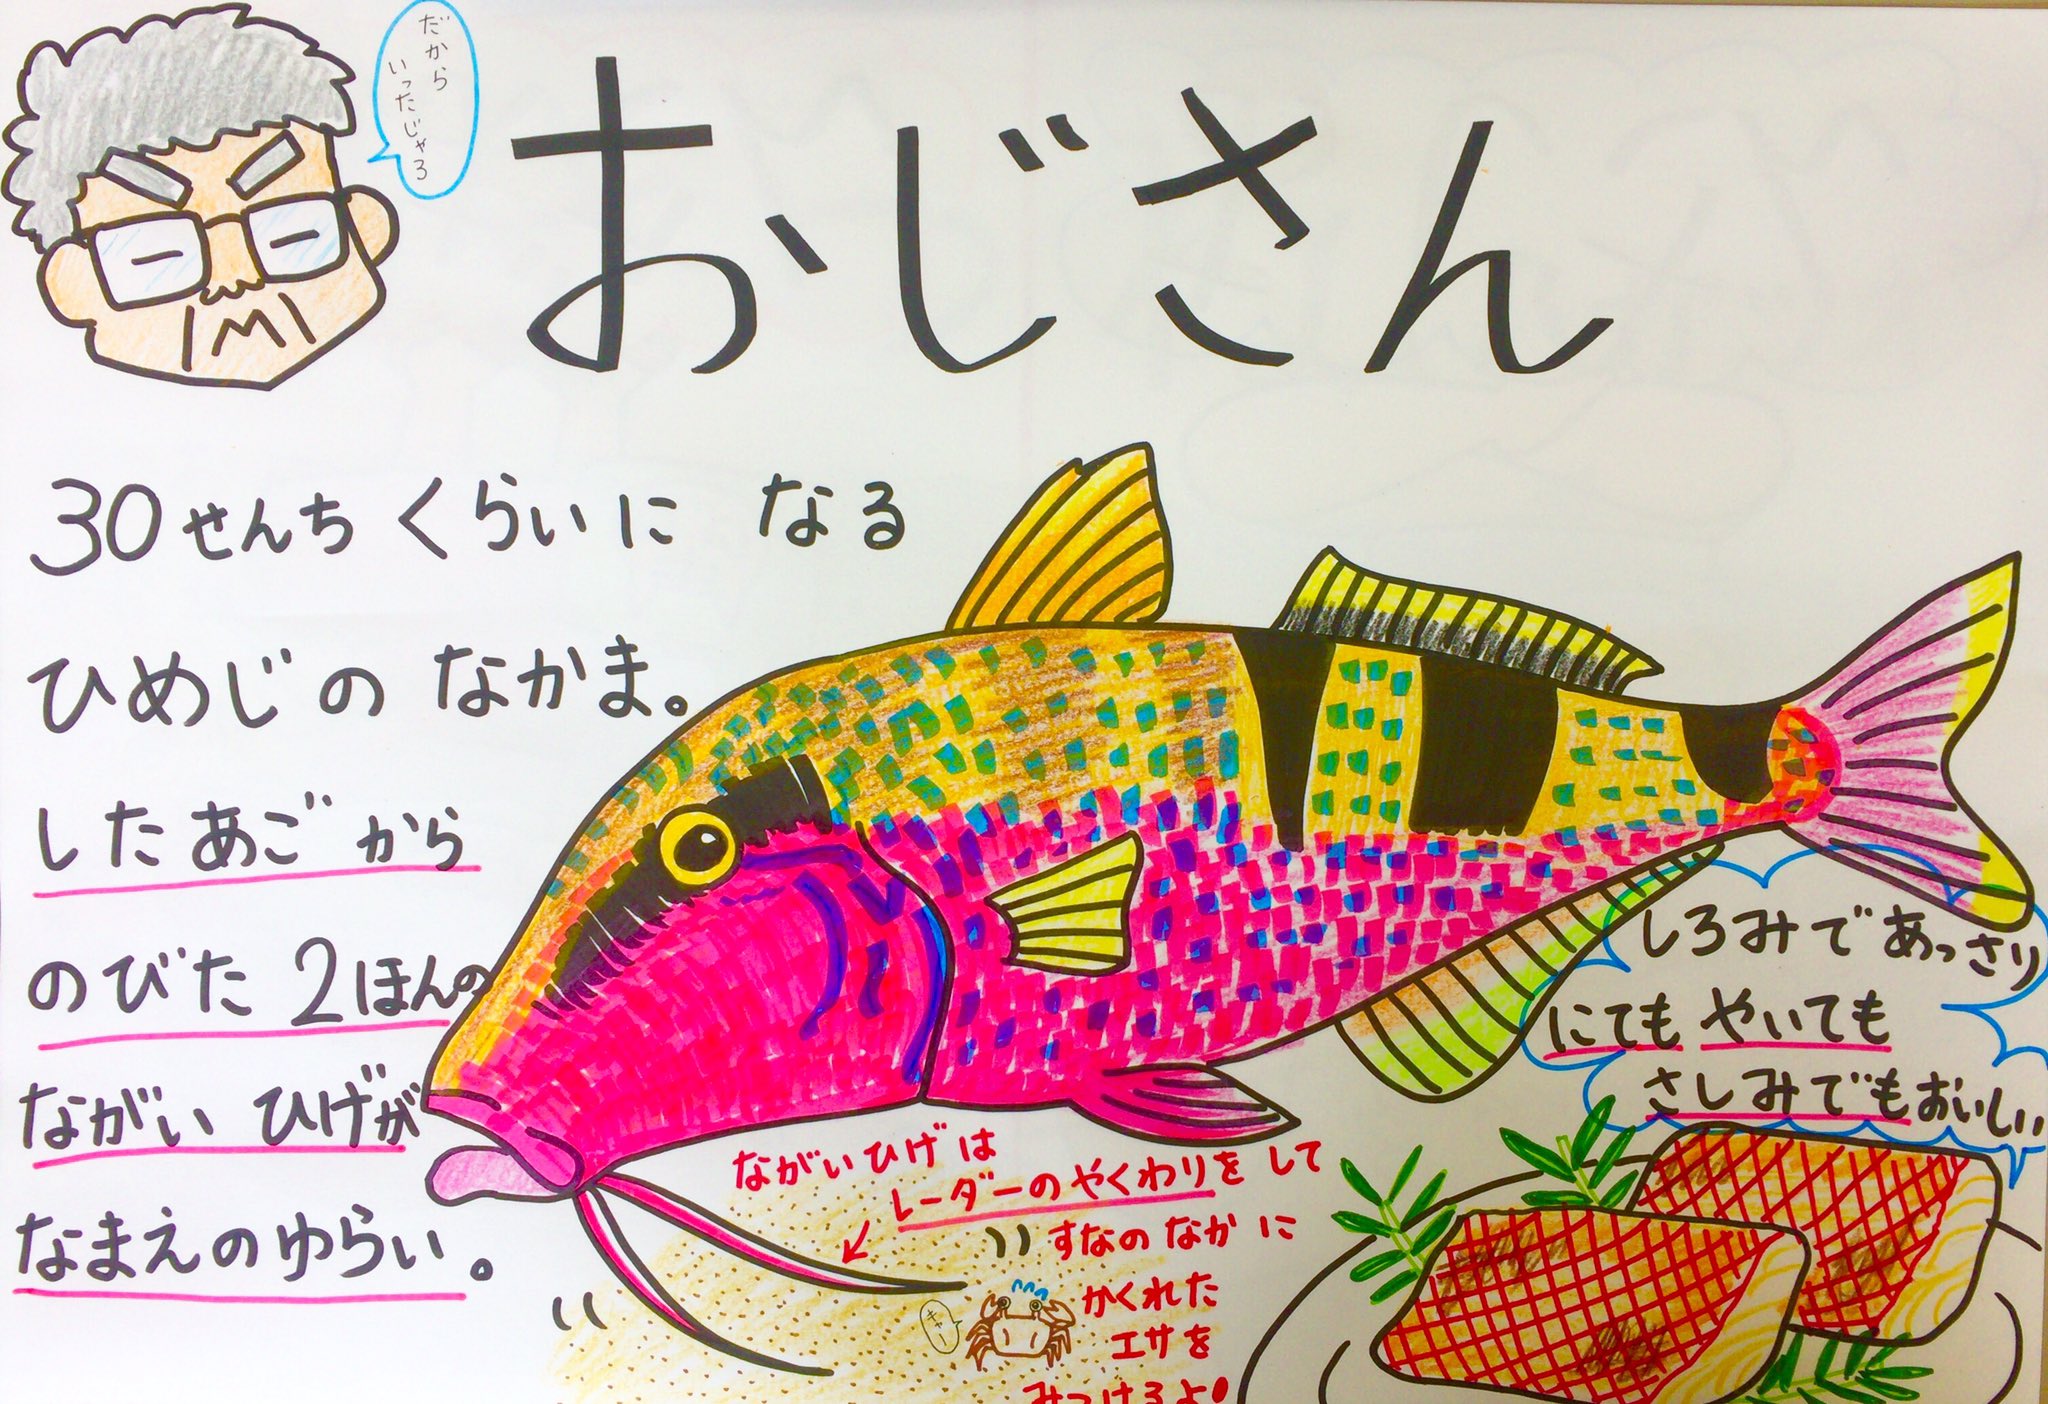 だから
いったじゃろ
おじさん
30せんちくらいに なる
ひめじの なかま。
したあごから
のびた 2ほんの
ながい ひげが
なまえのゆらい。
ながいひげは
レーダーのやくわりをして
すなのなかに
かくれた
エサを
みつけるよ!
キャー
しろみであっさり
にても やいても
さしみでもおいしい